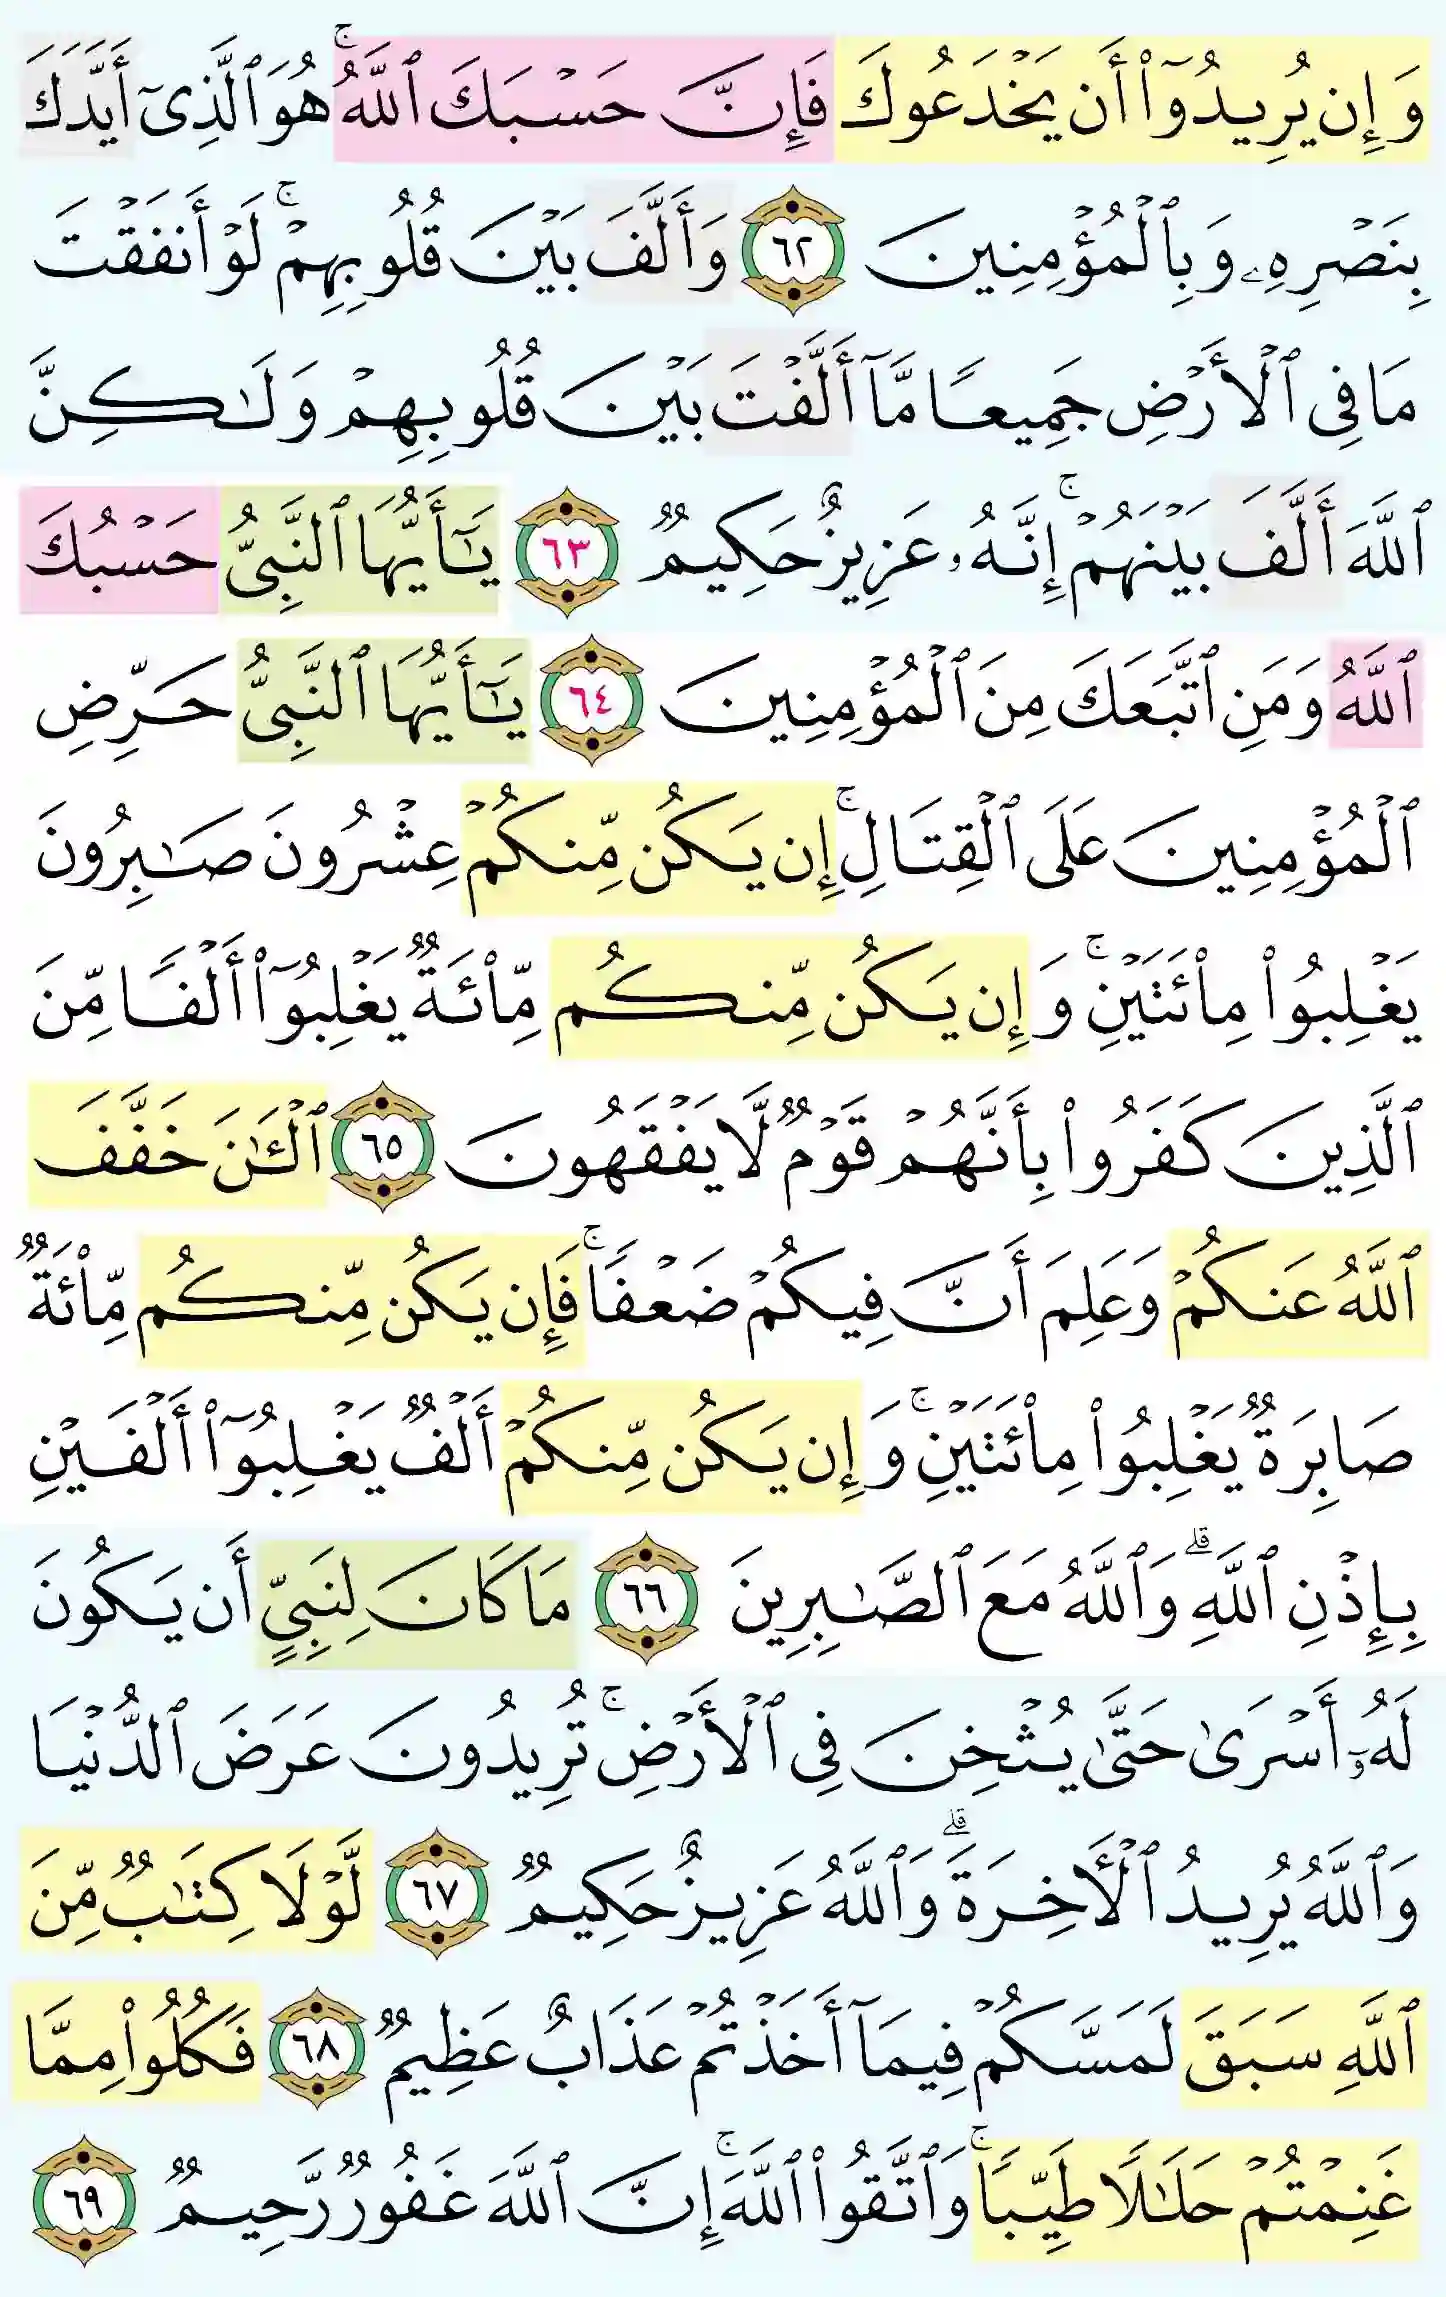 وَإِن يُرِيدُوٓا۟ أَن يَخْدَعُوكَ فَإِنَّ حَسْبَكَ ٱللَّهُ ۚ هُوَ ٱلَّذِىٓ أَيَّدَكَ
بِنَصْرِهِۦ وَبِٱلْمُؤْمِنِينَ ٦٢ وَأَلَّفَ بَيْنَ قُلُوبِهِمْ ۚ لَوْ أَنفَقْتَ
مَا فِى ٱلْأَرْضِ جَمِيعًا مَّآ أَلَّفْتَ بَيْنَ قُلُوبِهِمْ وَلَـٰكِنَّ
ٱللَّهَ أَلَّفَ بَيْنَهُمْ ۚ إِنَّهُۥ عَزِيزٌ حَكِيمٌ ٦٣ يَـٰٓأَيُّهَا ٱلنَّبِىُّ حَسْبُكَ
ٱللَّهُ وَمَنِ ٱتَّبَعَكَ مِنَ ٱلْمُؤْمِنِينَ ٦٤ يَـٰٓأَيُّهَا ٱلنَّبِىُّ حَرِّضِ
ٱلْمُؤْمِنِينَ عَلَى ٱلْقِتَالِ ۚ إِن يَكُن مِّنكُمْ عِشْرُونَ صَـٰبِرُونَ
يَغْلِبُوا۟ مِا۟ئَتَيْنِ ۚ وَإِن يَكُن مِّنكُم مِّا۟ئَةٌ يَغْلِبُوٓا۟ أَلْفًا مِّنَ
ٱلَّذِينَ كَفَرُوا۟ بِأَنَّهُمْ قَوْمٌ لَّا يَفْقَهُونَ ٦٥ ٱلْـَٔـٰنَ خَفَّفَ
ٱللَّهُ عَنكُمْ وَعَلِمَ أَنَّ فِيكُمْ ضَعْفًا ۚ فَإِن يَكُن مِّنكُم مِّا۟ئَةٌ
صَابِرَةٌ يَغْلِبُوا۟ مِا۟ئَتَيْنِ ۚ وَإِن يَكُن مِّنكُمْ أَلْفٌ يَغْلِبُوٓا۟ أَلْفَيْنِ
بِإِذْنِ ٱللَّهِ ۗ وَٱللَّهُ مَعَ ٱلصَّـٰبِرِينَ ٦٦ مَا كَانَ لِنَبِىٍّ أَن يَكُونَ
لَهُۥٓ أَسْرَىٰ حَتَّىٰ يُثْخِنَ فِى ٱلْأَرْضِ ۚ تُرِيدُونَ عَرَضَ ٱلدُّنْيَا
وَٱللَّهُ يُرِيدُ ٱلْـَٔاخِرَةَ ۗ وَٱللَّهُ عَزِيزٌ حَكِيمٌ ٦٧ لَّوْلَا كِتَـٰبٌ مِّنَ
ٱللَّهِ سَبَقَ لَمَسَّكُمْ فِيمَآ أَخَذْتُمْ عَذَابٌ عَظِيمٌ ٦٨ فَكُلُوا۟ مِمَّا
غَنِمْتُمْ حَلَـٰلًا طَيِّبًا ۚ وَٱتَّقُوا۟ ٱللَّهَ ۚ إِنَّ ٱللَّهَ غَفُورٌ رَّحِيمٌ ٦٩